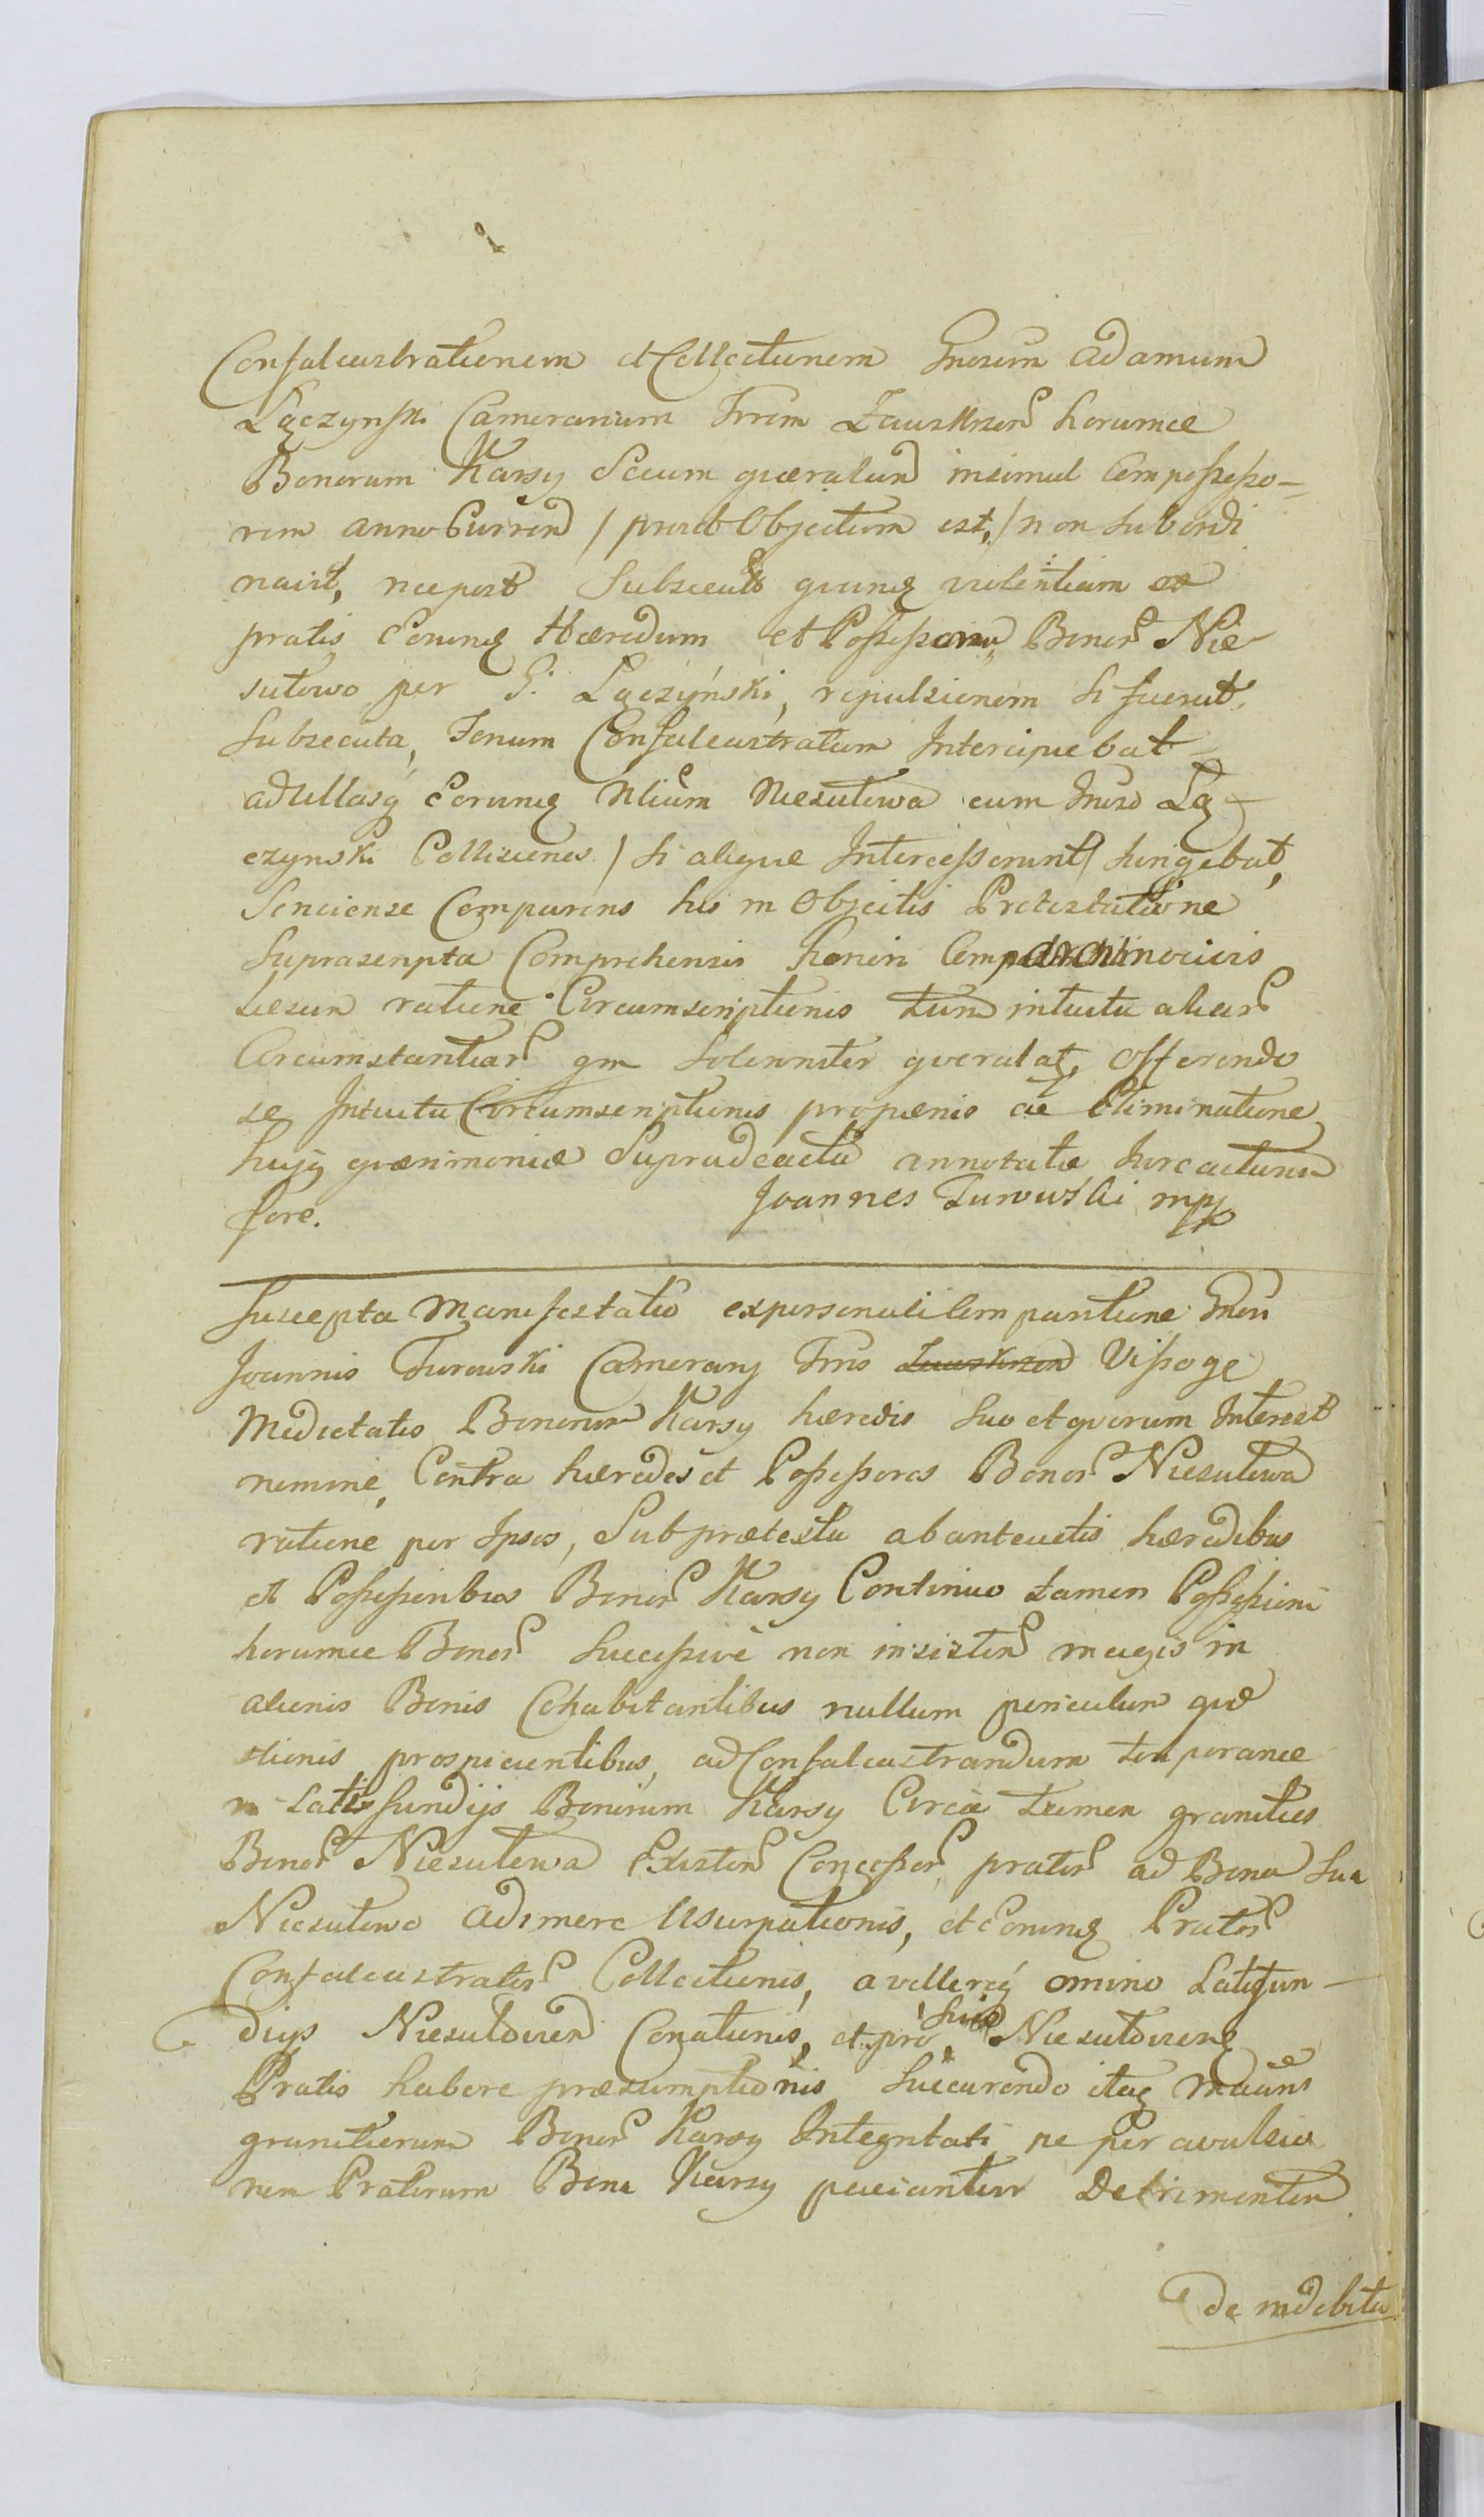 Confalcastrationem et Collectionem Gnosum Adamum
Łączynski Camerarium Trrm Zauskrzen horumce
Bonorum Karsy Secum quærulan insimul Compossesso-
rem anno Curren / prout Objectum est, / non Subordi
navit, nec post Subsecut violentiam ex
pratis Hæredum et Possessorum, Bonor Nie
sutowo per G. Łączyński, repulsionem si fuerat,
Subsecuta, Fenum Confalcastratum Intercipiebat
ad ullasq Niesutowa cum Gnoso Łą-
czynski Collisiones / si aliquæ Intercesserunt / Surigebat,
Comparens his in Objectis Protestatione
Suprascripta Comprehensis honori Comparentis nocivis
Læsum ratione Circumscriptionis tum intuitu aliar
Circumstantiar Solenniter querulat, Offerendo
se Intuitu Circumscriptionis propænis ac Eliminatione
hujq quærimoniæ Supradeacta annotatæ Jure acturum
fore. Joannes Turowski mpp
Suscepta Manifestatio ex personali Comparitione Gnosi
Joannis Turowski Camerarij Trris Zauskrzen Vissoge
Medietatis Bonorum Karsy hæredis Suo et quorum Interest
nomine, Contra hæredes et Possessores Bonor Niesutowa
ratione per Ipsos, Sub prætextu ab anteactis hæredibus
et Possessoribus Bonor Karsy Continuo tamen Possessioni
horumce Bonor Successive non insisten magis in
alienis Bonis Cohabitantibus nullum periculum quæ
stionis prospicientibus, ad Confalcastrandum temporanee
in Latifundijs Bonorum Karsy Circa tamen granities
Bonor Niesutowa Existen Concessor, prator ad Bona Sua
Niesutowo adimere Usurpationis, et Prator
Confalcastrator Collectionis, avellereq omino Latifun-
dijs Niesutovien Conationis, et pro Suis Niesutovien
Pratis habere præsumptionis Succurendo itaq
granitierum Bonor Karsy Integritati ne per avulsio
nem Pratorum Bona Karsy paciantur Detrimentum
de indebita